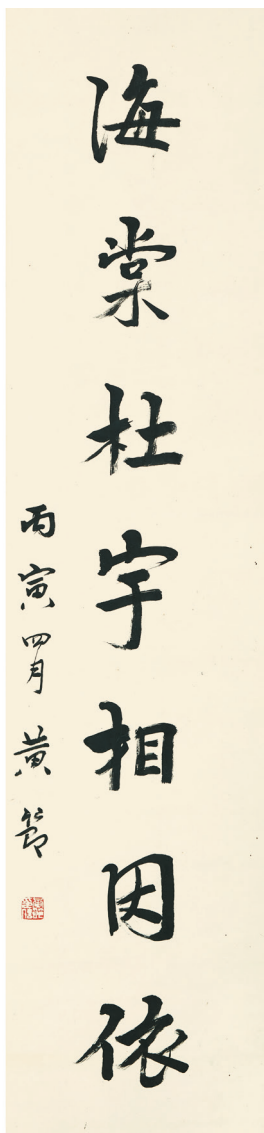 海棠杜宇相因依
丙寅四月黄節